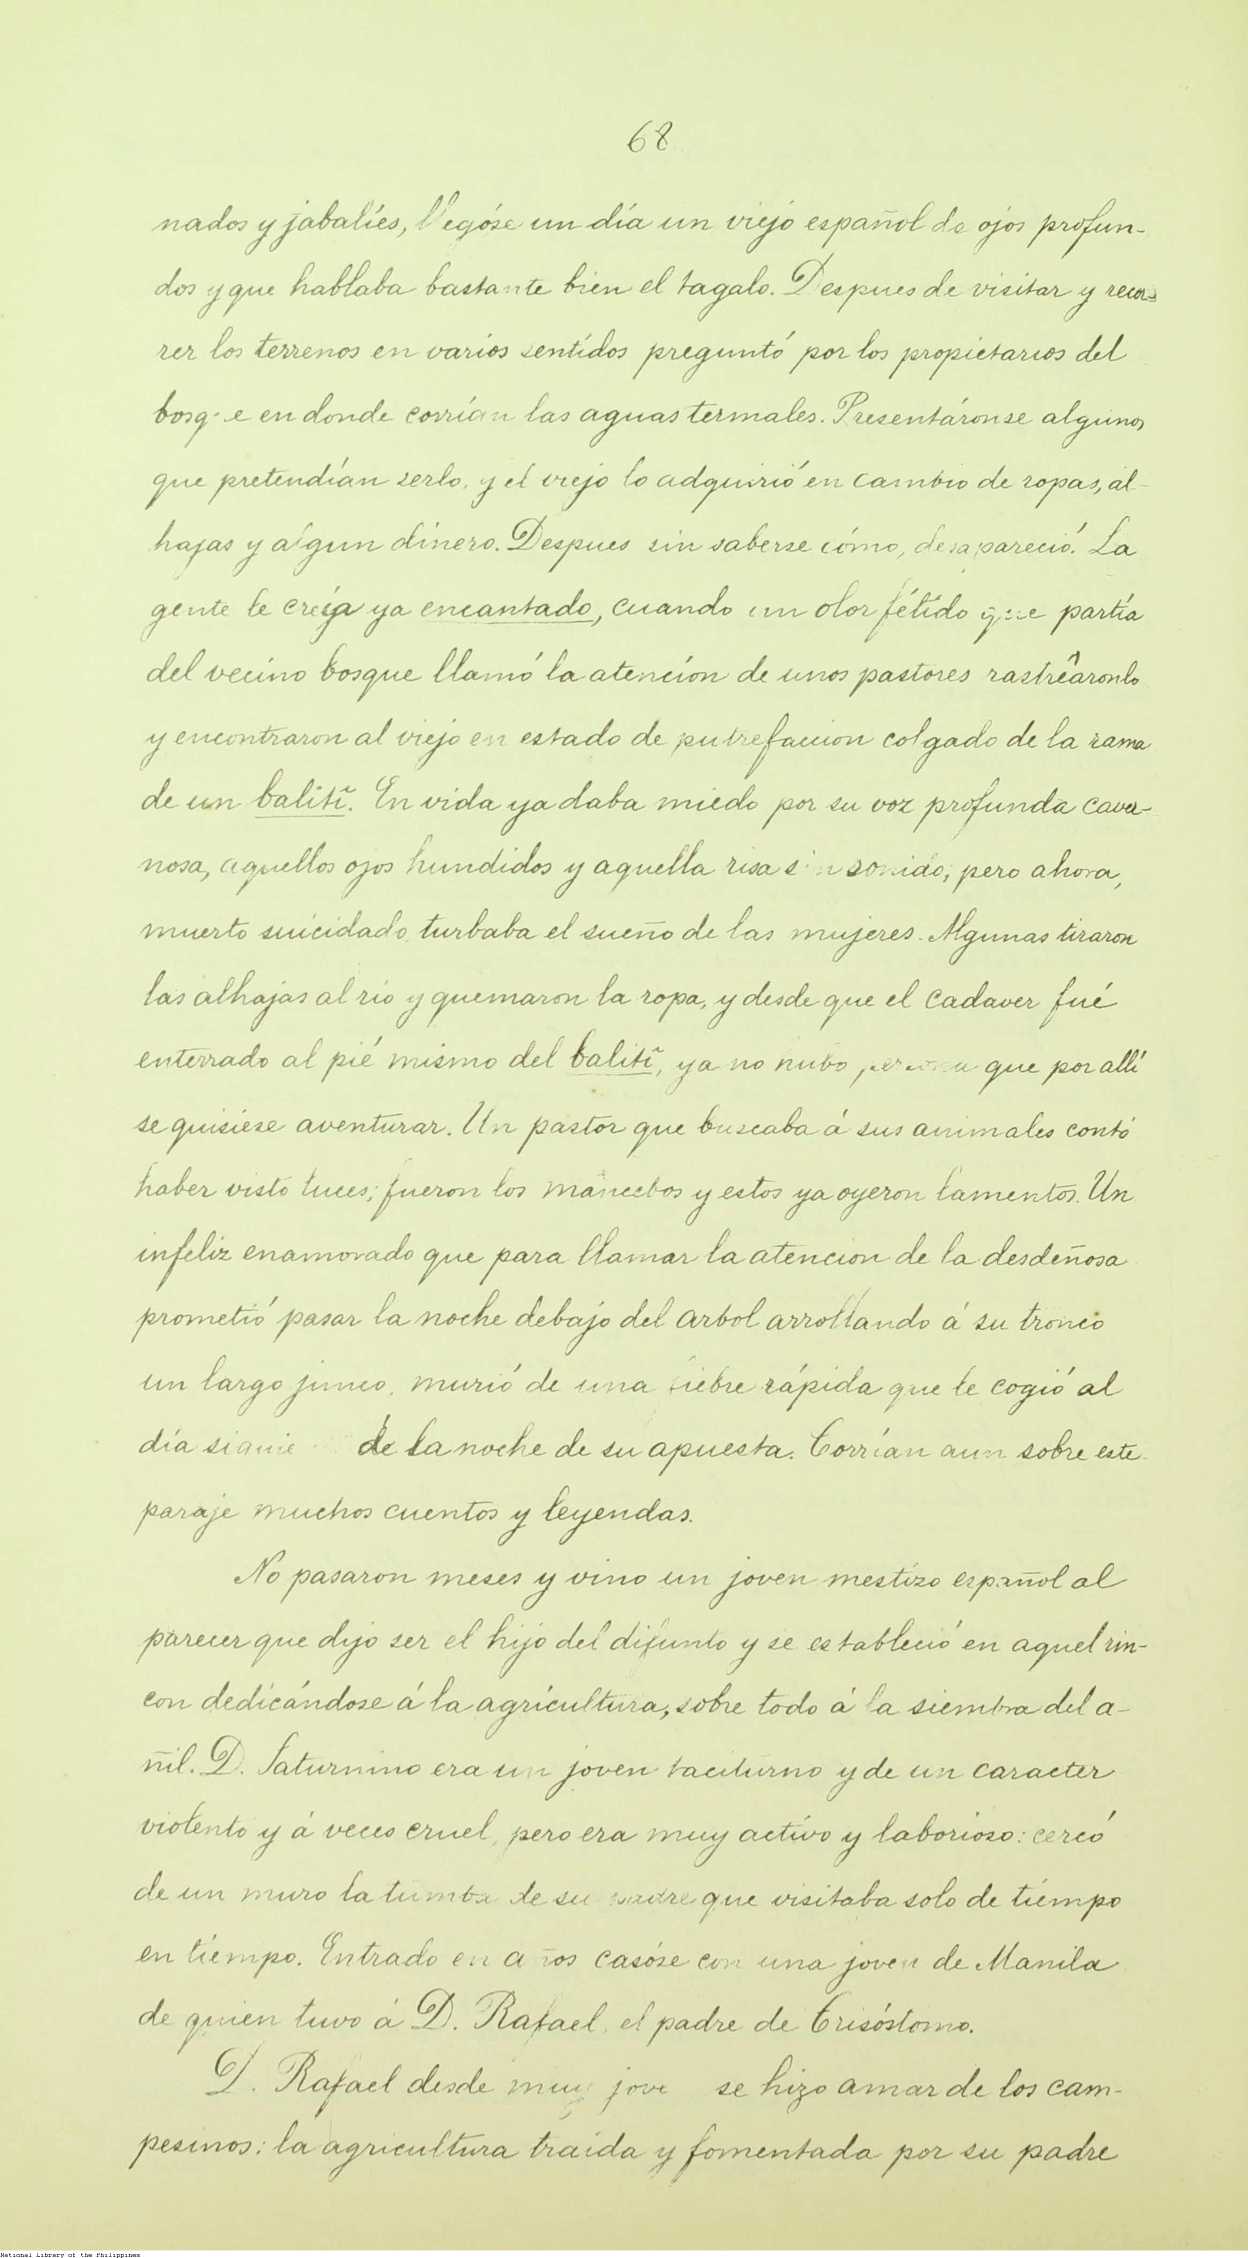 68
nados y jabalíes, llegóse un día un viejo español de ojos profun-
dos y que hablaba bastante bien el tagalo. Despues de visitar y recor-
rer los terrenos en varios sentidos preguntó por los propietarios del
bosque en donde corrían las aguas termales. Presentáronse algunos
que pretendían serlo, y el viejo lo adquirió en cambio de ropas, al-
hajas y algun dinero. Despues sin saberse cómo, desapareció. La
gente le creía ya encantado, cuando un olor fétido que partía
del vecino bosque llamó la atención de unos pastores rastreáronlo
y encontraron al viejo en estado de putrefaccion colgado de la rama
de un balitĩ. En vida ya daba miedo por su voz profunda caver-
nosa, aquellos ojos hundidos y aquella risa sin sonido, pero ahora,
muerto suicidado, turbaba el sueño de las mujeres. Algunas tiraron
las alhajas al río y quemaron la ropa, y desde que el cadaver fué
enterrado al pié mismo del balitĩ, ya no hubo persona que por allí
se quisiese aventurar. Un pastor que buscaba á sus animales contó
haber visto luces; fueron los mancebos y estos ya oyeron lamentos. Un
infeliz enamorado que para llamar la atencion de la desdeñosa
prometió pasar la noche debajo del arbol arrollando á su tronco
un largo junco, murió de una fiebre rápida que le cogió al
día siguie de la noche de su apuesta. Corrían aun sobre este
paraje muchos cuentos y leyendas.
No pasaron meses y vino un joven mestizo español al
parecer que dijo ser el hijo del difunto y se estableció en aquel rin-
con dedicándose á la agricultura, sobre todo á la siembra del a-
ñil. D. Saturnino era un joven taciturno y de un caracter
violento y á veces cruel, pero era muy activo y laborioso: cercó
de un muro la tumba de su padre que visitaba solo de tiempo
en tiempo. Entrado en años casóse con una joven de Manila
de quien tuvo á D. Rafael, el padre de Crisóstomo.
D. Rafael desde muy jove se hizo amar de los cam-
pesinos: la agricultura traída y fomentada por su padre
National Library of the Philippines